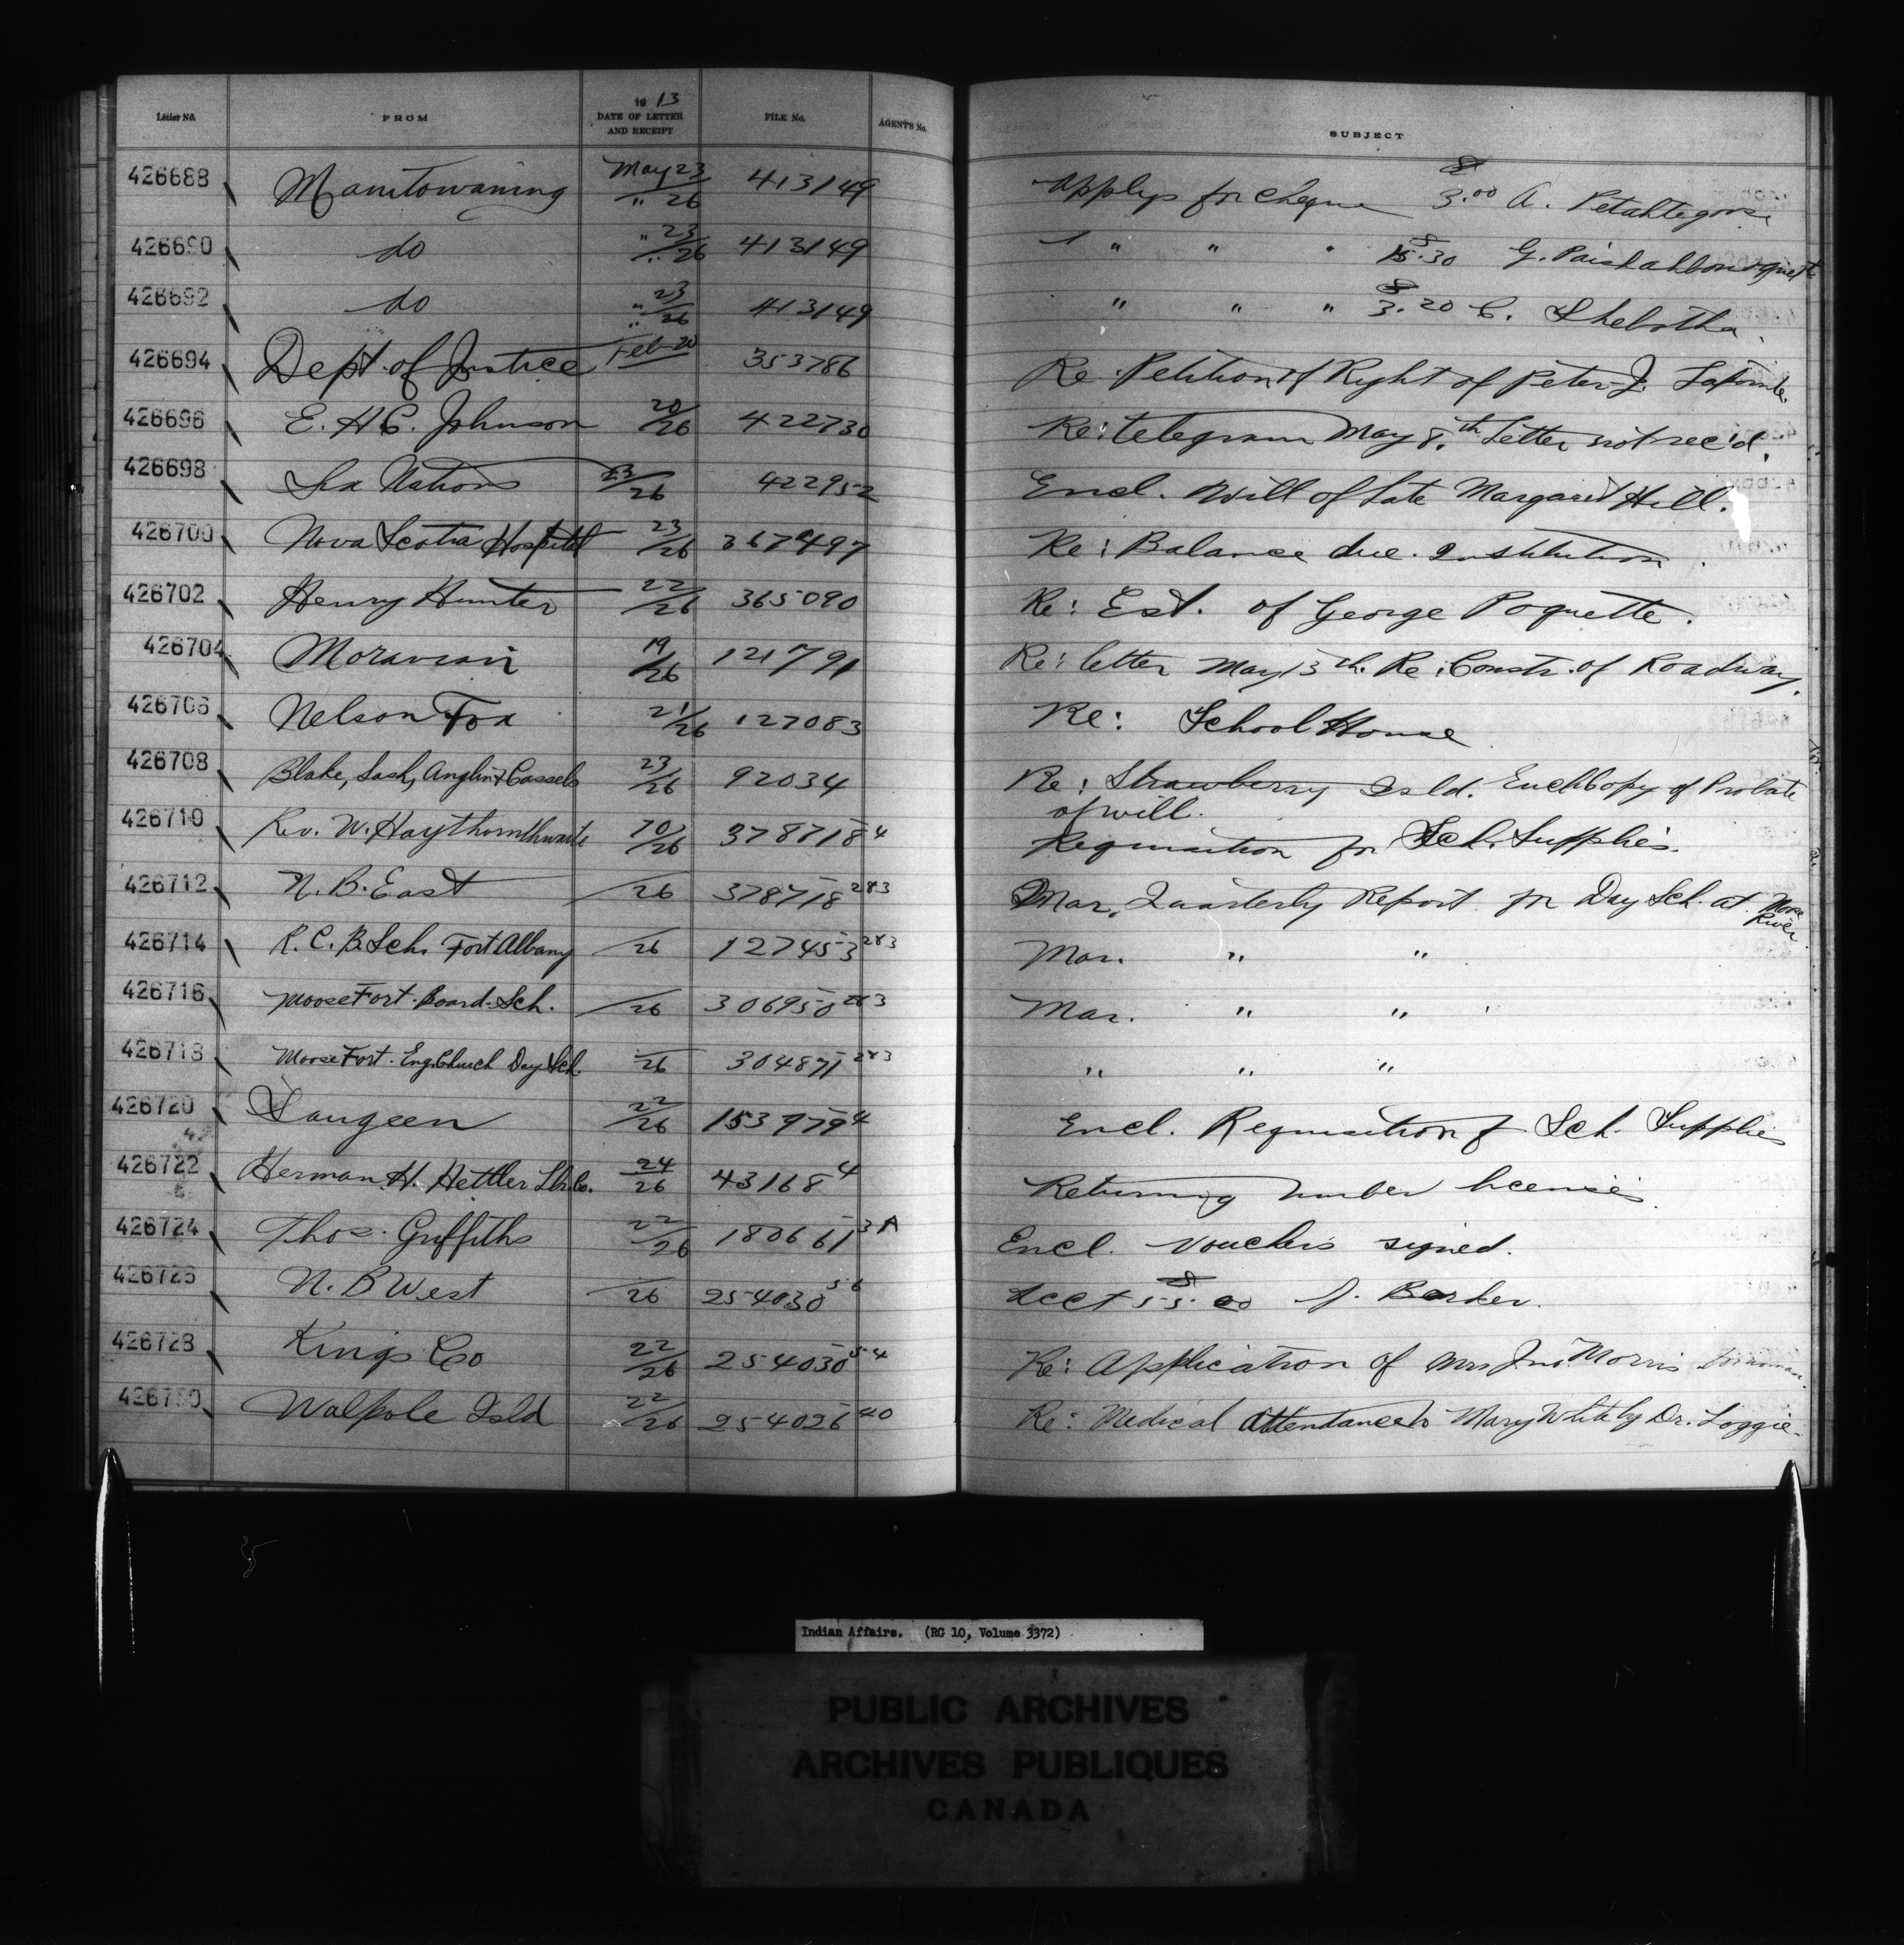 Letter No. FROM 1913 DATE OF LETTER AND RECEIPT FILE No. AGENT'S No. SUBJECT
426688 Manitowaning May 23/" 26 413149 Applys for cheque $3.00 A.
426690 do " 23/" 26 413149 " " " G.
426692 do " 23/" 26 413149 " " " $3.20 C.
426694 Dept. of Justice Feb-20 353786 Re: Petition of Right of Peter J.
426696 E. H. C. Johnson 20/26 422730 Re: telegram May 8th Letter not rec'd.
426698 Six Nations 23/26 422952 Encl. Will of Late Margaret Hill.
426700 Nova Scotia Hospital 23/26 367497 Re: Balance due Institution.
426702 Henry Hunter 22/26 365090 Re: Est. of George Poquette.
426704 Moravian 19/26 121791 Re: letter May 13th. Re: Constr. of Roadway.
426706 Nelson Fox 21/26 127083 Re: School House
426708 Blake, Lash, Anglin & Cassels 23/26 92034 Re: Strawberry Isld. Encl Copy of Probate
of will.
426710 Rev. W. Haythornthwaite 20/26 378718-4 Requisition for Sch. Supplies.
426712 N. B. East /26 378718-283 Mar. Quarterly Report for Day Sch. at Moose River.
426714 R. C. B. Sch. Fort Albany /26 127453-283 Mar. " "
426716 Moose Fort. Board. Sch. /26 306950-283 Mar. " "
426718 Moose Fort. Eng. Church Day Sch. /26 304871-283 " " "
426720 Saugeen 22/26 153979-4 Encl. Requisition for Sch. Supplies
426722 Herman H. Hettler Lbr. Co. 24/26 43168-4 Returning timber licenses
426724 Thos. Griffiths 22/26 180661-3A Encl. Vouchers signed.
426726 N. B West /26 254030-56 Acct $55.00 J. Barker.
426728 Kings Co 22/26 254030-54 Re: Application of Mrs Jno Morris
426730 Walpole Isld 22/26 254026-40 Re: Medical Attendance to Mary White by Dr. Loggie.
Indian Affairs. (RG 10, Volume 3372)
PUBLIC ARCHIVES
ARCHIVES PUBLIQUES
CANADA